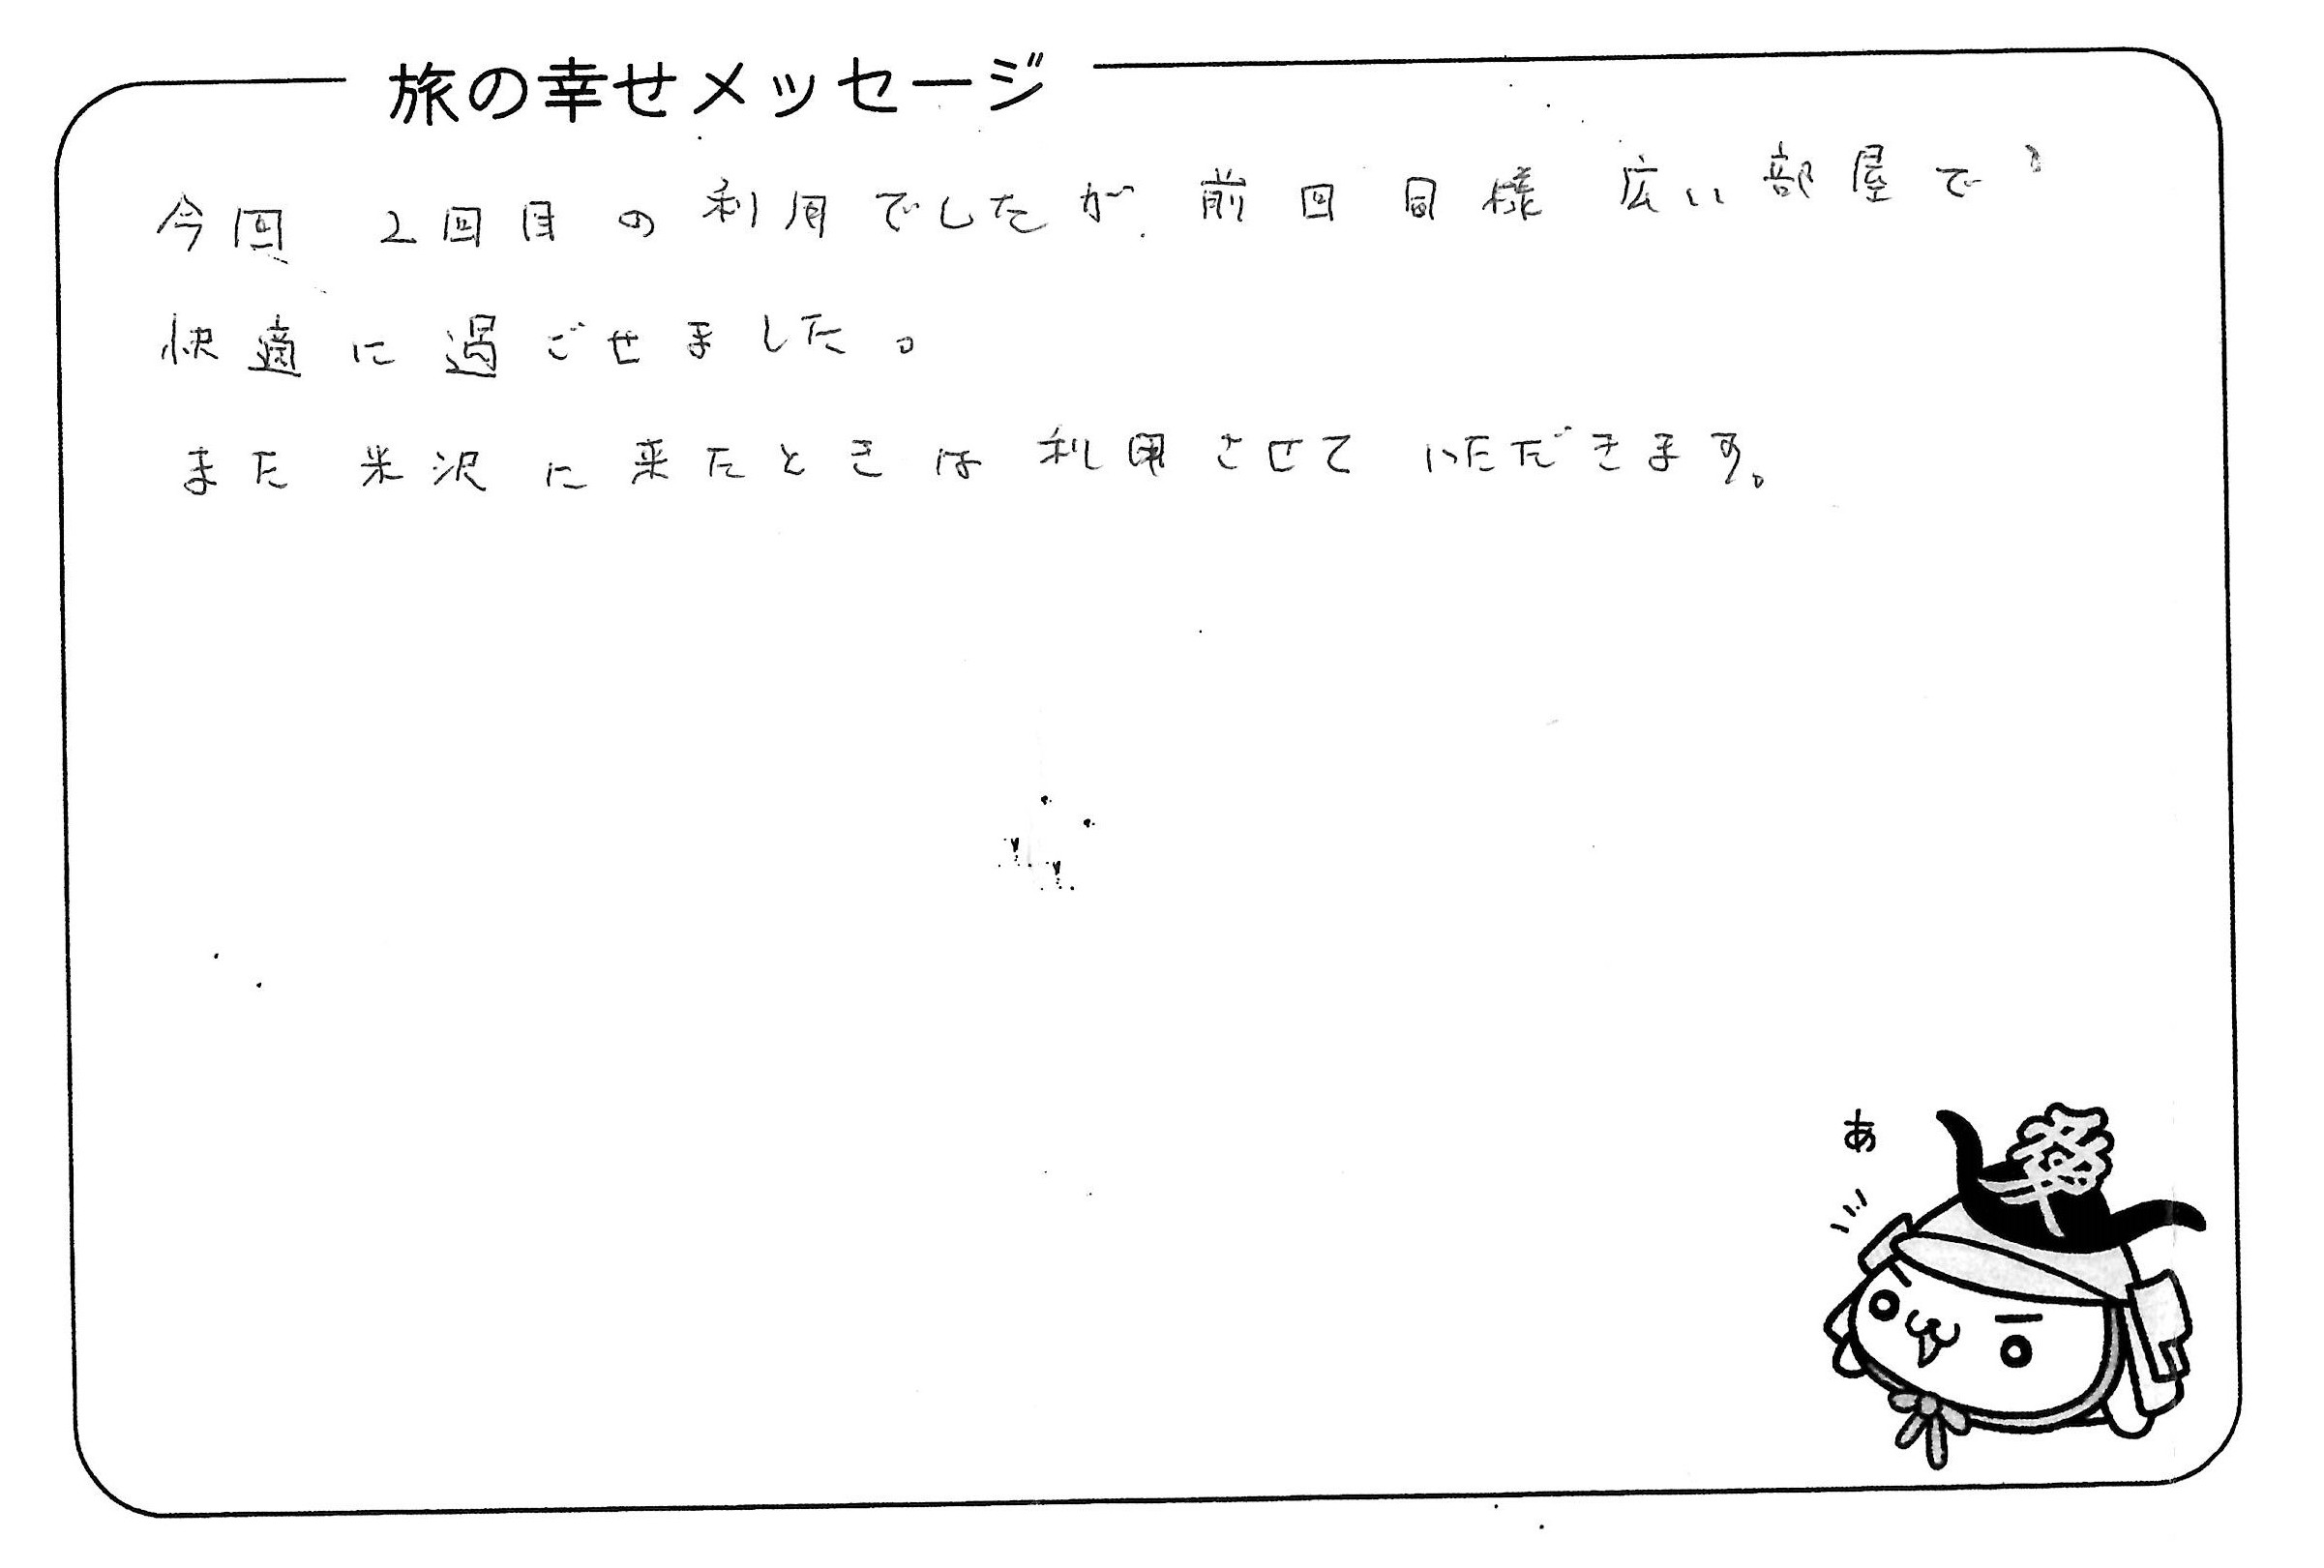 旅の幸せメッセージ
今回 2回目の利用でしたが、前回同様広い部屋で
快適に過ごせました。
また米沢に来たときは利用させていただきます。
あ
愛